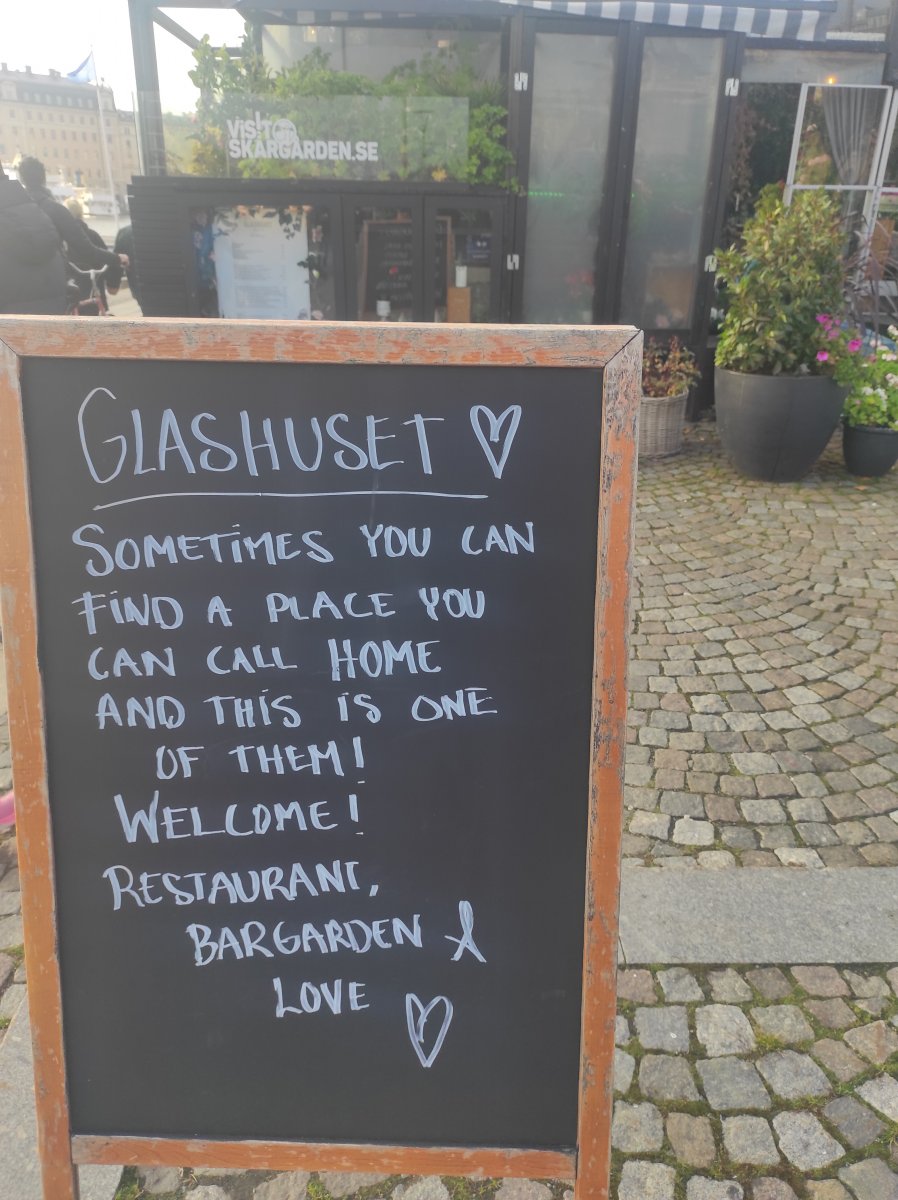 VISIT
SKÄRGÅRDEN.SE
GLASHUSET ♡
SOMETIMES YOU CAN
FIND A PLACE YOU
CAN CALL HOME
AND THIS IS ONE
OF THEM!
WELCOME!
RESTAURANT,
BARGARDEN &
LOVE ♡